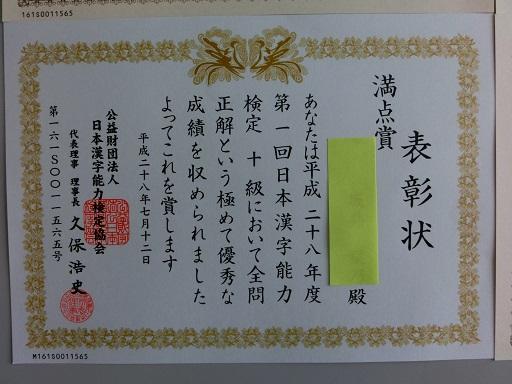 161S0011565
表彰状
満点賞
殿
あなたは平成二十八年度
第一回日本漢字能力
検定 十 級において全問
正解という極めて優秀な
成績を収められました
よってこれを賞します
平成二十八年七月十二日
公益財団法人
日本漢字能力検定協会
代表理事 理事長 久保浩史
第一六一S〇〇一一五六五号
M161S0011565